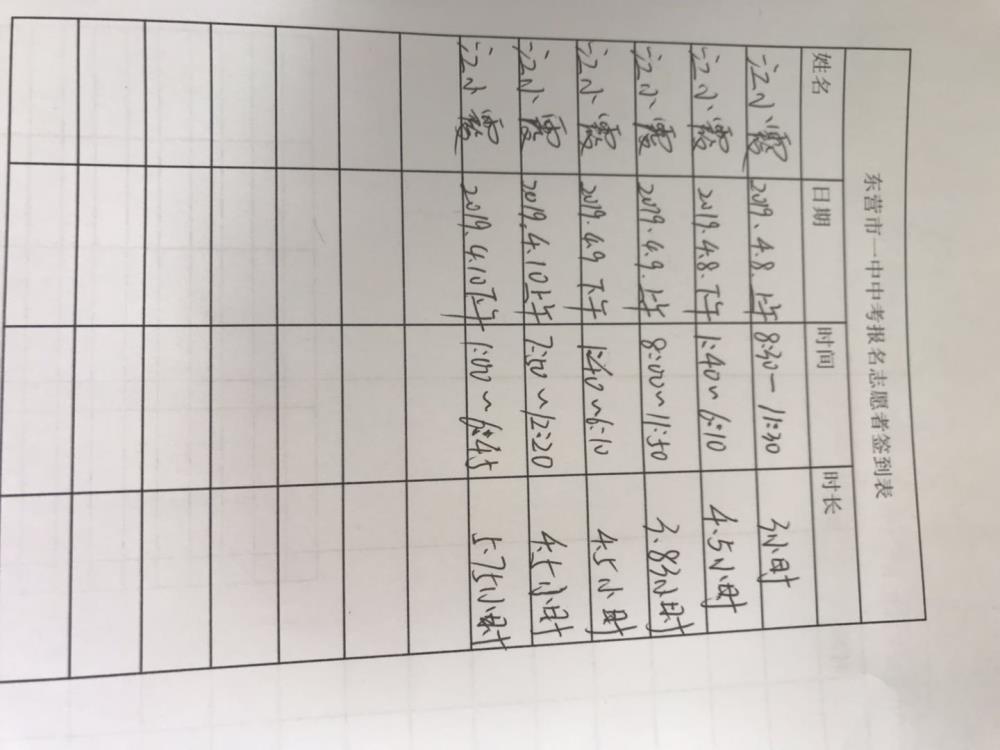 东营市一中中考报名志愿者签到表
姓名 日期 时间 时长
江小霞 2019.4.8.上午 8:30—11:30 3小时
江小霞 2019.4.8.下午 1:40~6:10 4.5小时
江小霞 2019.4.9.上午 8:00~11:50 3.83小时
江小霞 2019.4.9下午 1:40~6:10 4.5小时
江小霞 2019.4.10上午 7:50~12:20 4.5小时
江小霞 2019.4.10下午 1:00~6:45 5.75小时